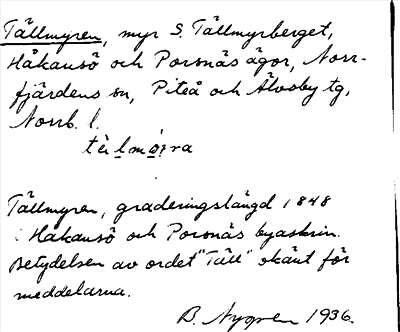 Tällmyren, myr S. Tällmyrberget,
Håkansö och Porsnäs ägor, Norr-
fjärdens sn, Piteå och Älvsby tg,
Norrb. l.
Tällmyren, graderingslängd 1848
i Håkansö och Porsnäs byaskrin.
Betydelsen av ordet "Täll" okänt för
meddelarna.
B. Nygren 1936.